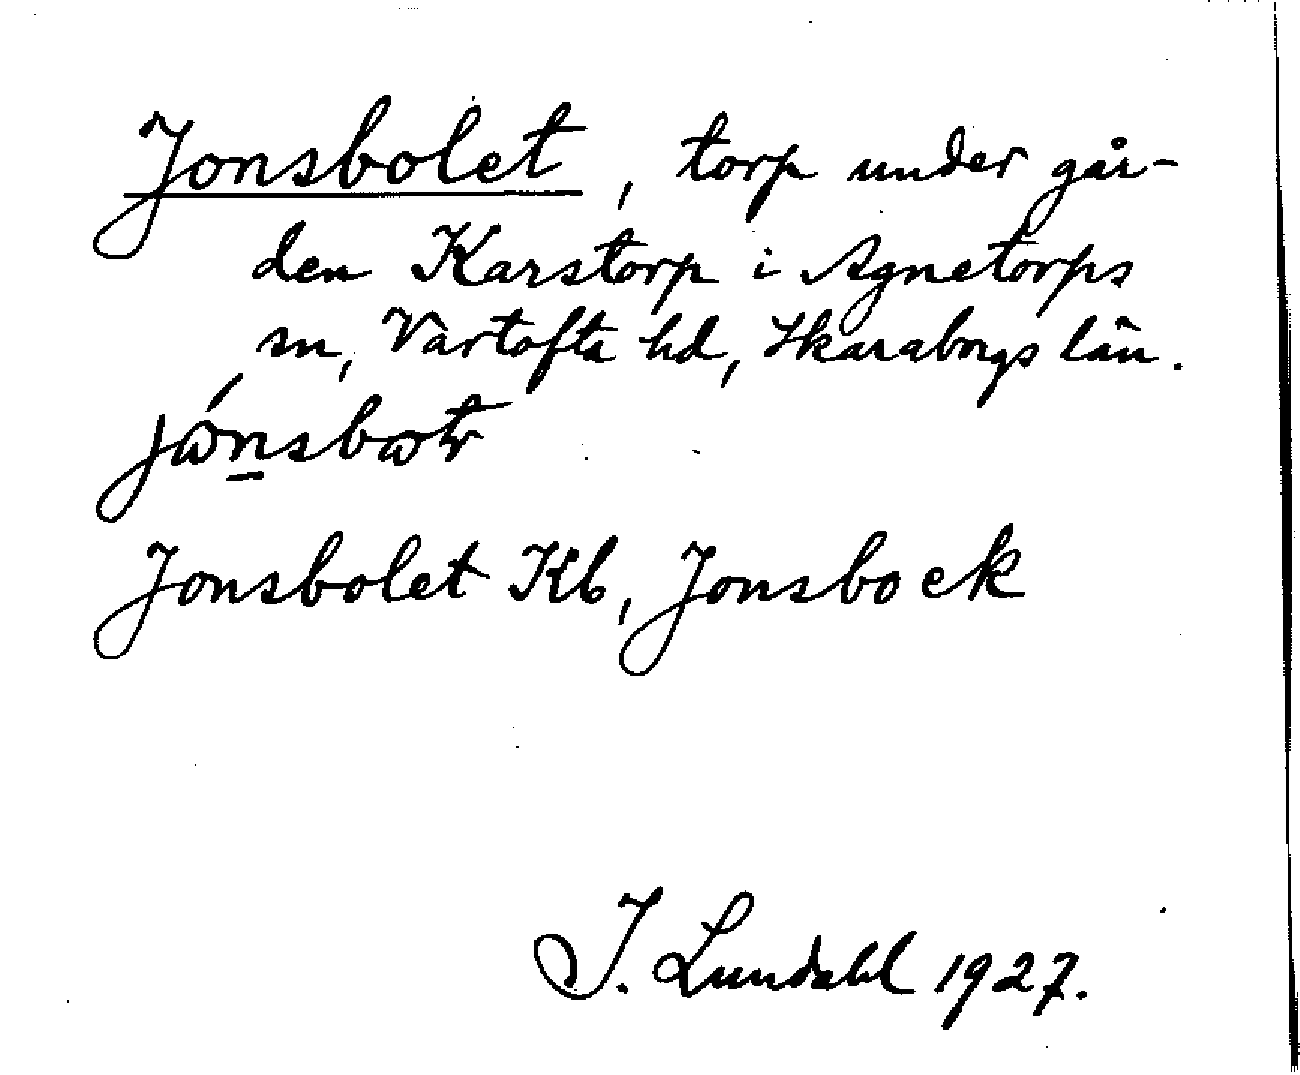 Jonsbolet, torp under går-
den Karstorp i Agnetorps
sn, Vartofta hd, Skaraborgs län.
Jonsbolet Kb, Jonsbo ek
J. Lundahl 1927.